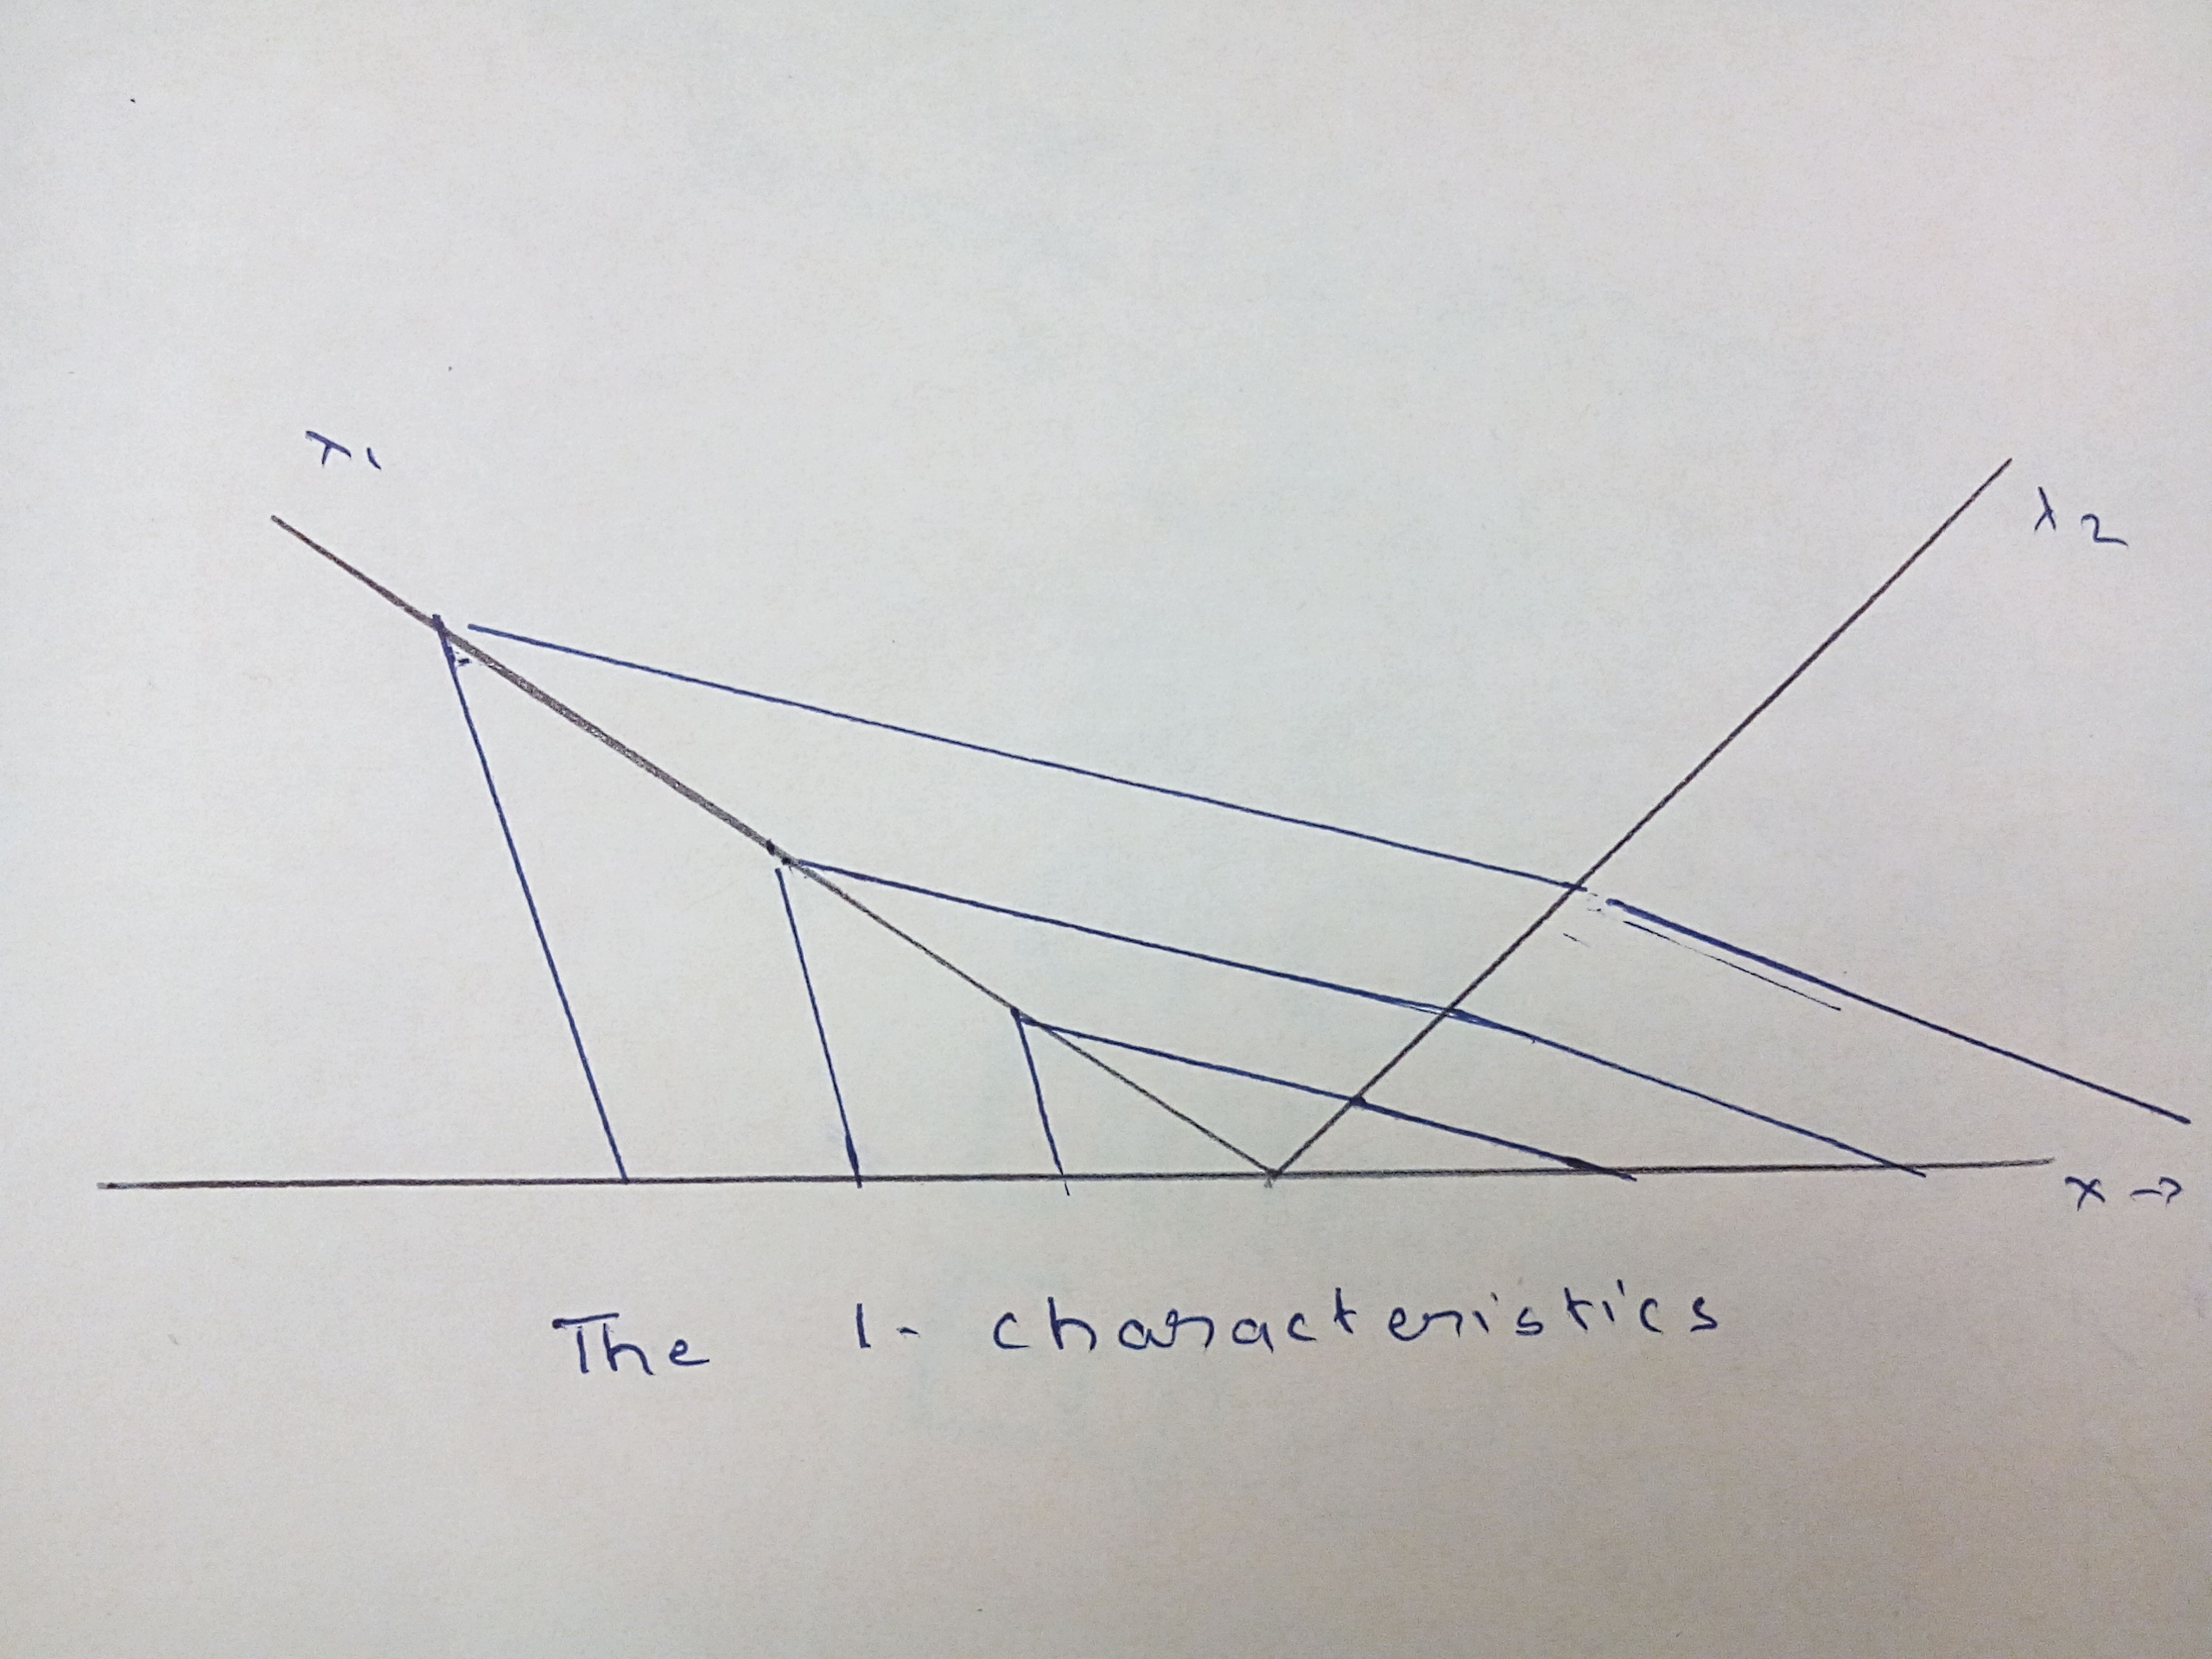 λ₁
λ₂
x →
The 1- characteristics